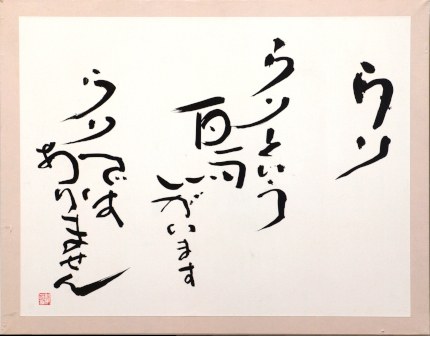 ウソ
ウソという
鳥がいます
ウソでは
ありません